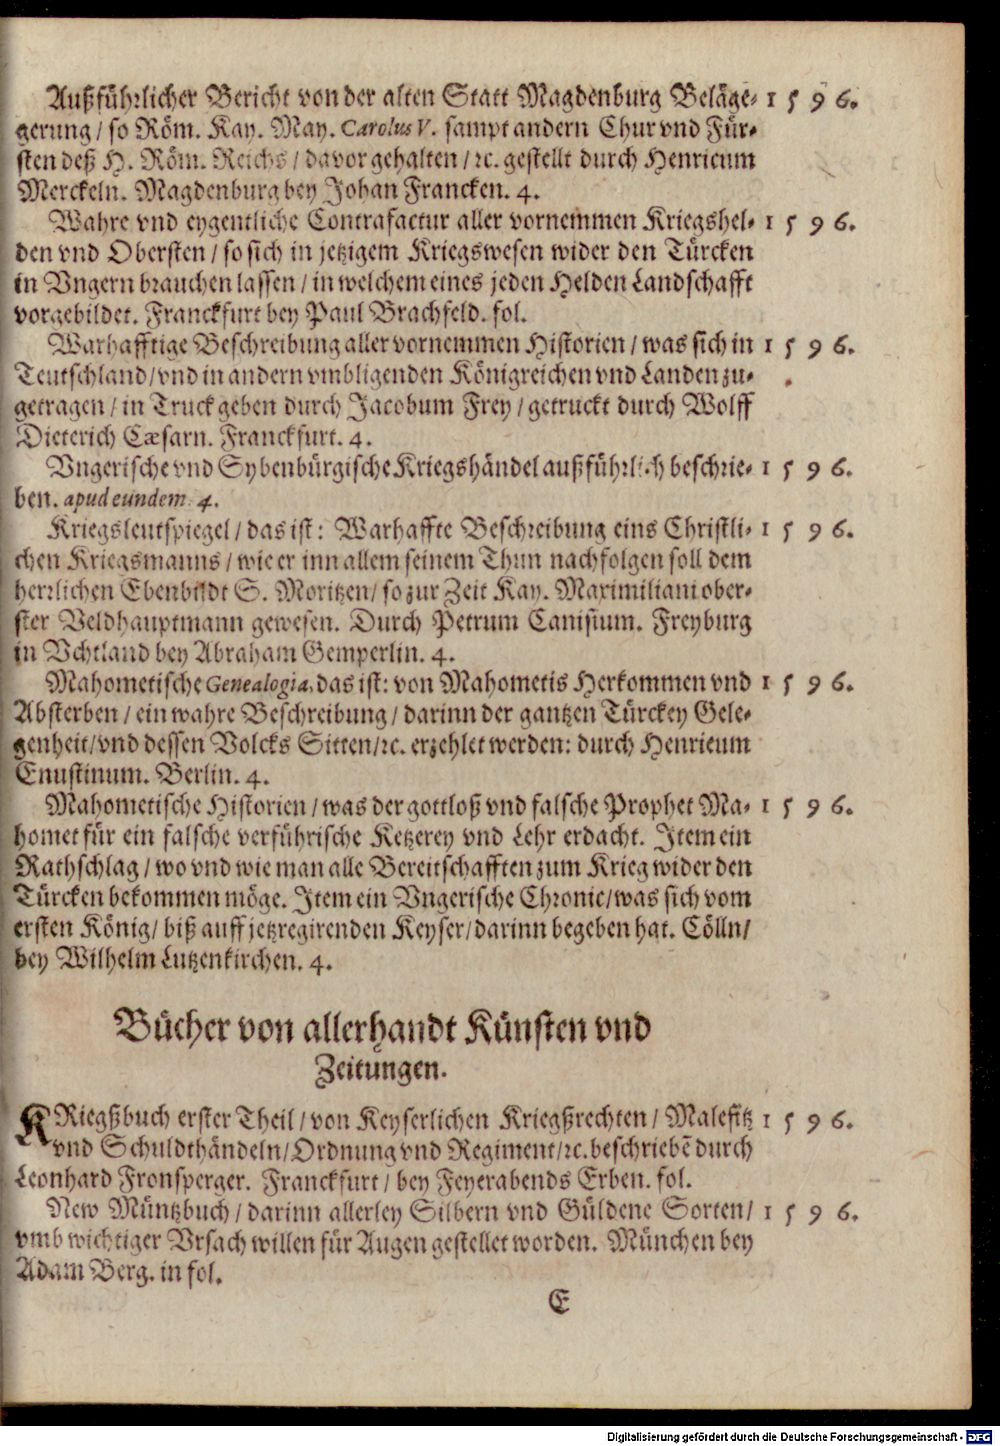 Außführlicher Bericht von der alten Statt Magdenburg Beläge- 1596.
gerung/ so Röm. Kay. May. Carolus V. sampt andern Chur vnd Für-
sten deß H. Röm. Reichs/ davor gehalten/ ꝛc. gestellt durch Henricum
Merckeln. Magdenburg bey Johan Francken. 4.
Wahre vnd eygentliche Contrafactur aller vornemmen Kriegshel- 1596.
den vnd Obersten/ so sich in jetzigem Kriegswesen wider den Türcken
in Vngern brauchen lassen/ in welchem eines jeden Helden Landschafft
vorgebildet. Franckfurt bey Paul Brachfeld. fol.
Warhafftige Beschreibung aller vornemmen Historien/ was sich in 1596.
Teutschland/ vnd in andern vmbligenden Königreichen vnd Landen zu-
getragen/ in Truck geben durch Jacobum Frey/ getruckt durch Wolff
Dieterich Cæsarn. Franckfurt. 4.
Vngerische vnd Sybenbürgische Kriegshändel außführlich beschrie- 1596.
ben. apud eundem. 4.
Kriegsleutspiegel/ das ist: Warhaffte Beschreibung eins Christli- 1596.
chen Kriegsmanns/ wie er inn allem seinem Thun nachfolgen soll dem
herrlichen Ebenbildt S. Moritzen/ so zur Zeit Kay. Maximiliani ober-
ster Veldhauptmann gewesen. Durch Petrum Canisium. Freyburg
in Vchtland bey Abraham Gemperlin. 4.
Mahometische Genealogia, das ist: von Mahometis Herkommen vnd 1596.
Absterben/ ein wahre Beschreibung/ darinn der gantzen Türckey Gele-
genheit/ vnd dessen Volcks Sitten/ ꝛc. erzehlet werden: durch Henricum
Enustinum. Berlin. 4.
Mahometische Historien/ was der gottloß vnd falsche Prophet Ma- 1596.
homet für ein falsche verführische Ketzerey vnd Lehr erdacht. Item ein
Rathschlag/ wo vnd wie man alle Bereitschafften zum Krieg wider den
Türcken bekommen möge. Item ein Vngerische Chronic/ was sich vom
ersten König/ biß auff jetzregirenden Keyser/ darinn begeben hat. Cölln/
bey Wilhelm Lutzenkirchen. 4.
Bücher von allerhandt Künsten vnd
Zeitungen.
KRiegßbuch erster Theil/ von Keyserlichen Kriegßrechten/ Malefitz 1596.
vnd Schuldthändeln/ Ordnung vnd Regiment/ ꝛc. beschriebē durch
Leonhard Fronsperger. Franckfurt/ bey Feyerabends Erben. fol.
New Müntzbuch/ darinn allerley Silbern vnd Güldene Sorten/ 1596.
vmb wichtiger Vrsach willen für Augen gestellet worden. München bey
Adam Berg. in fol.
E
Digitalisierung gefördert durch die Deutsche Forschungsgemeinschaft - DFG